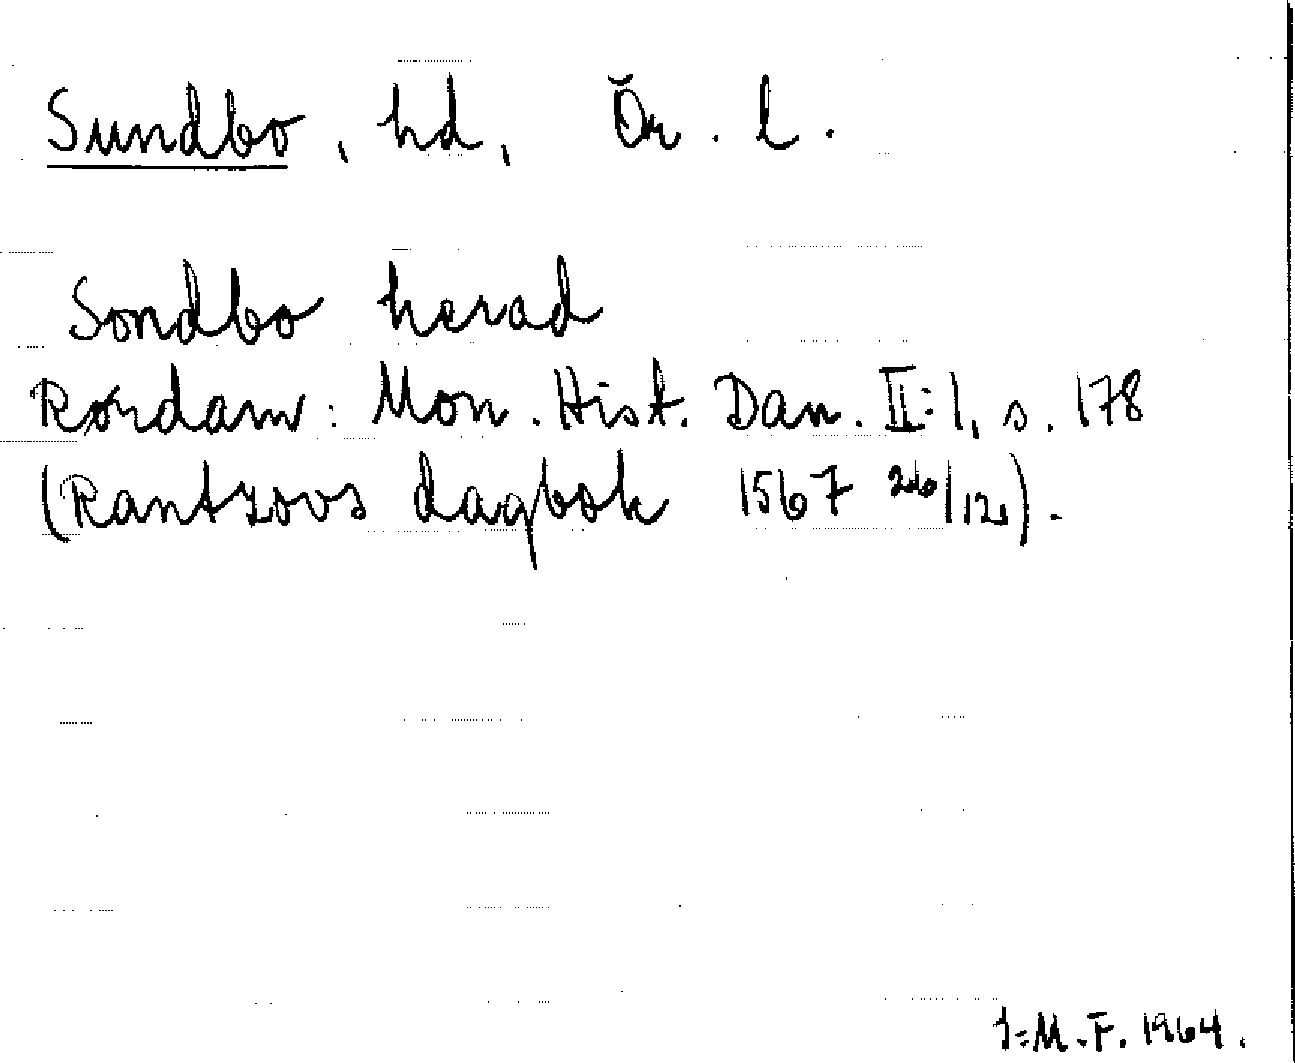 Sundbo, hd, Ör. l.
Sondbo herad
Rørdam: Mon. Hist. Dan. II:1, s. 178
(Rantzovs dagbok 1567 26/12).
J=M.F. 1964.